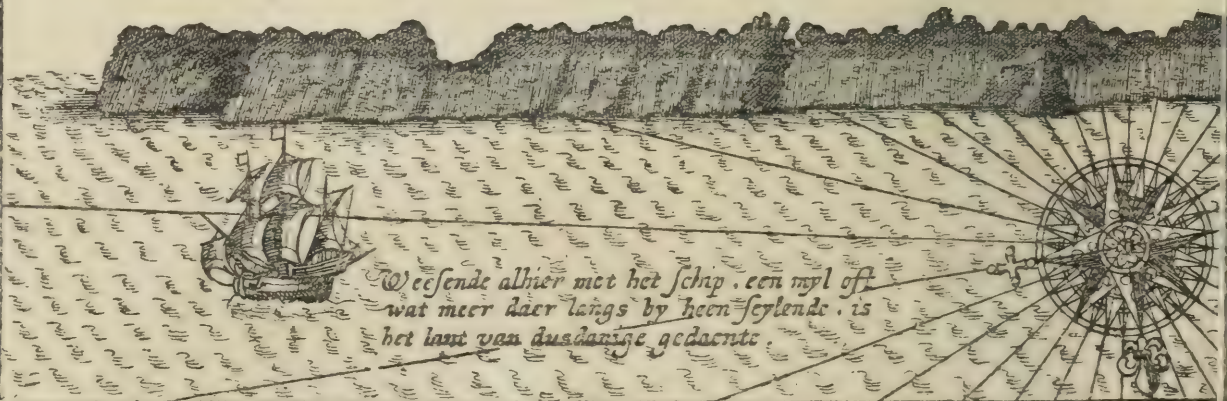 Weesende alhier met het schip, een myl oft
wat meer daer langs by heen seylende, is
het lant van dusdanige gedaente.